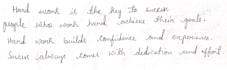 Hard work is the key to success.
people who work hard achieve their goals.
Hard work builds confidence and experience.
Success always comes with dedication and effort.